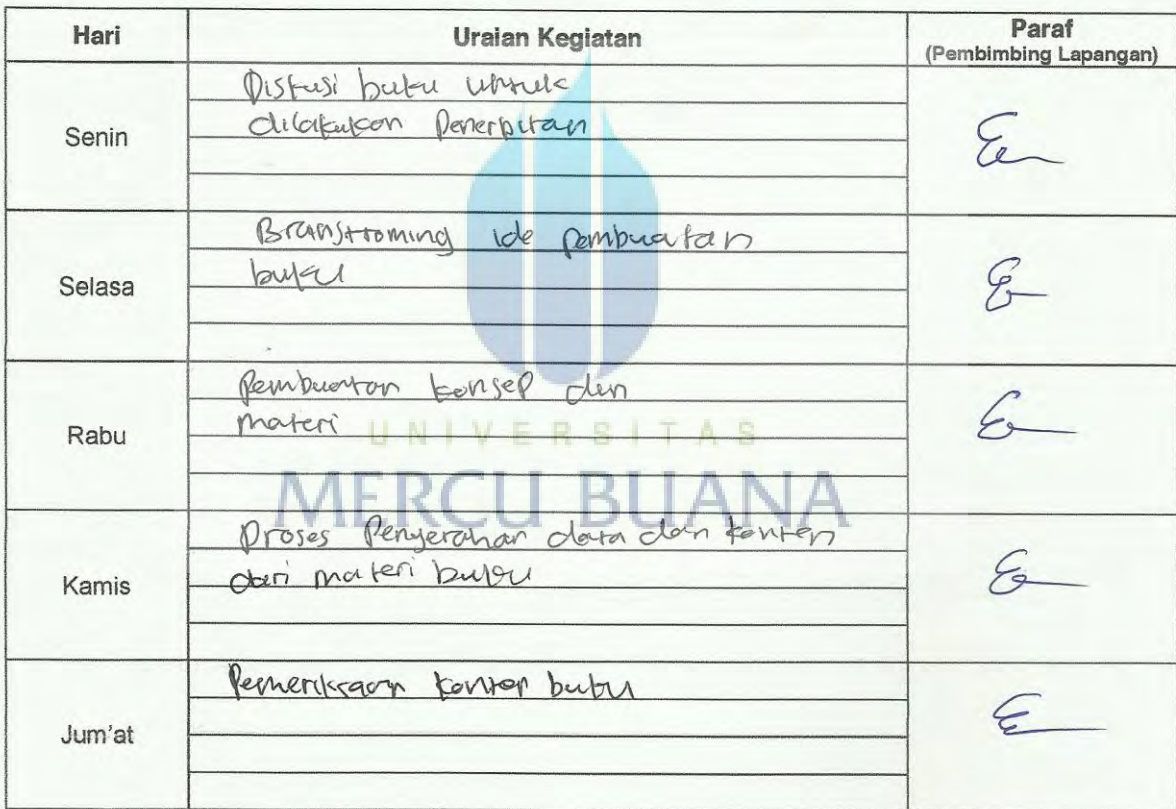 Hari Uraian Kegiatan Paraf
(Pembimbing Lapangan)
Senin
Diskusi buku untuk
dilakukan Penerbitan
Selasa
Branstroming ide pembuatan
buku
Rabu
Pembuatan konsep dan
materi
UNIVERSITAS
MERCU BUANA
Kamis
Proses Penyerahan data dan konten
dari materi buku
Jum'at
Pemeriksaan konten buku